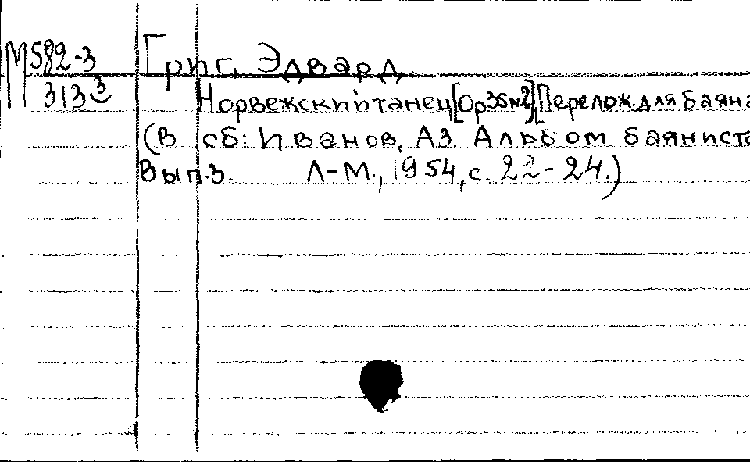 М582-3 Григ, Эдвард
313 3 Норвежский танец [Op 35 №2] [Перелож для баяна
(В сб: Иванов, Аз Альбом баяниста
Вып.3. Л-М., 1954, с. 22-24.)